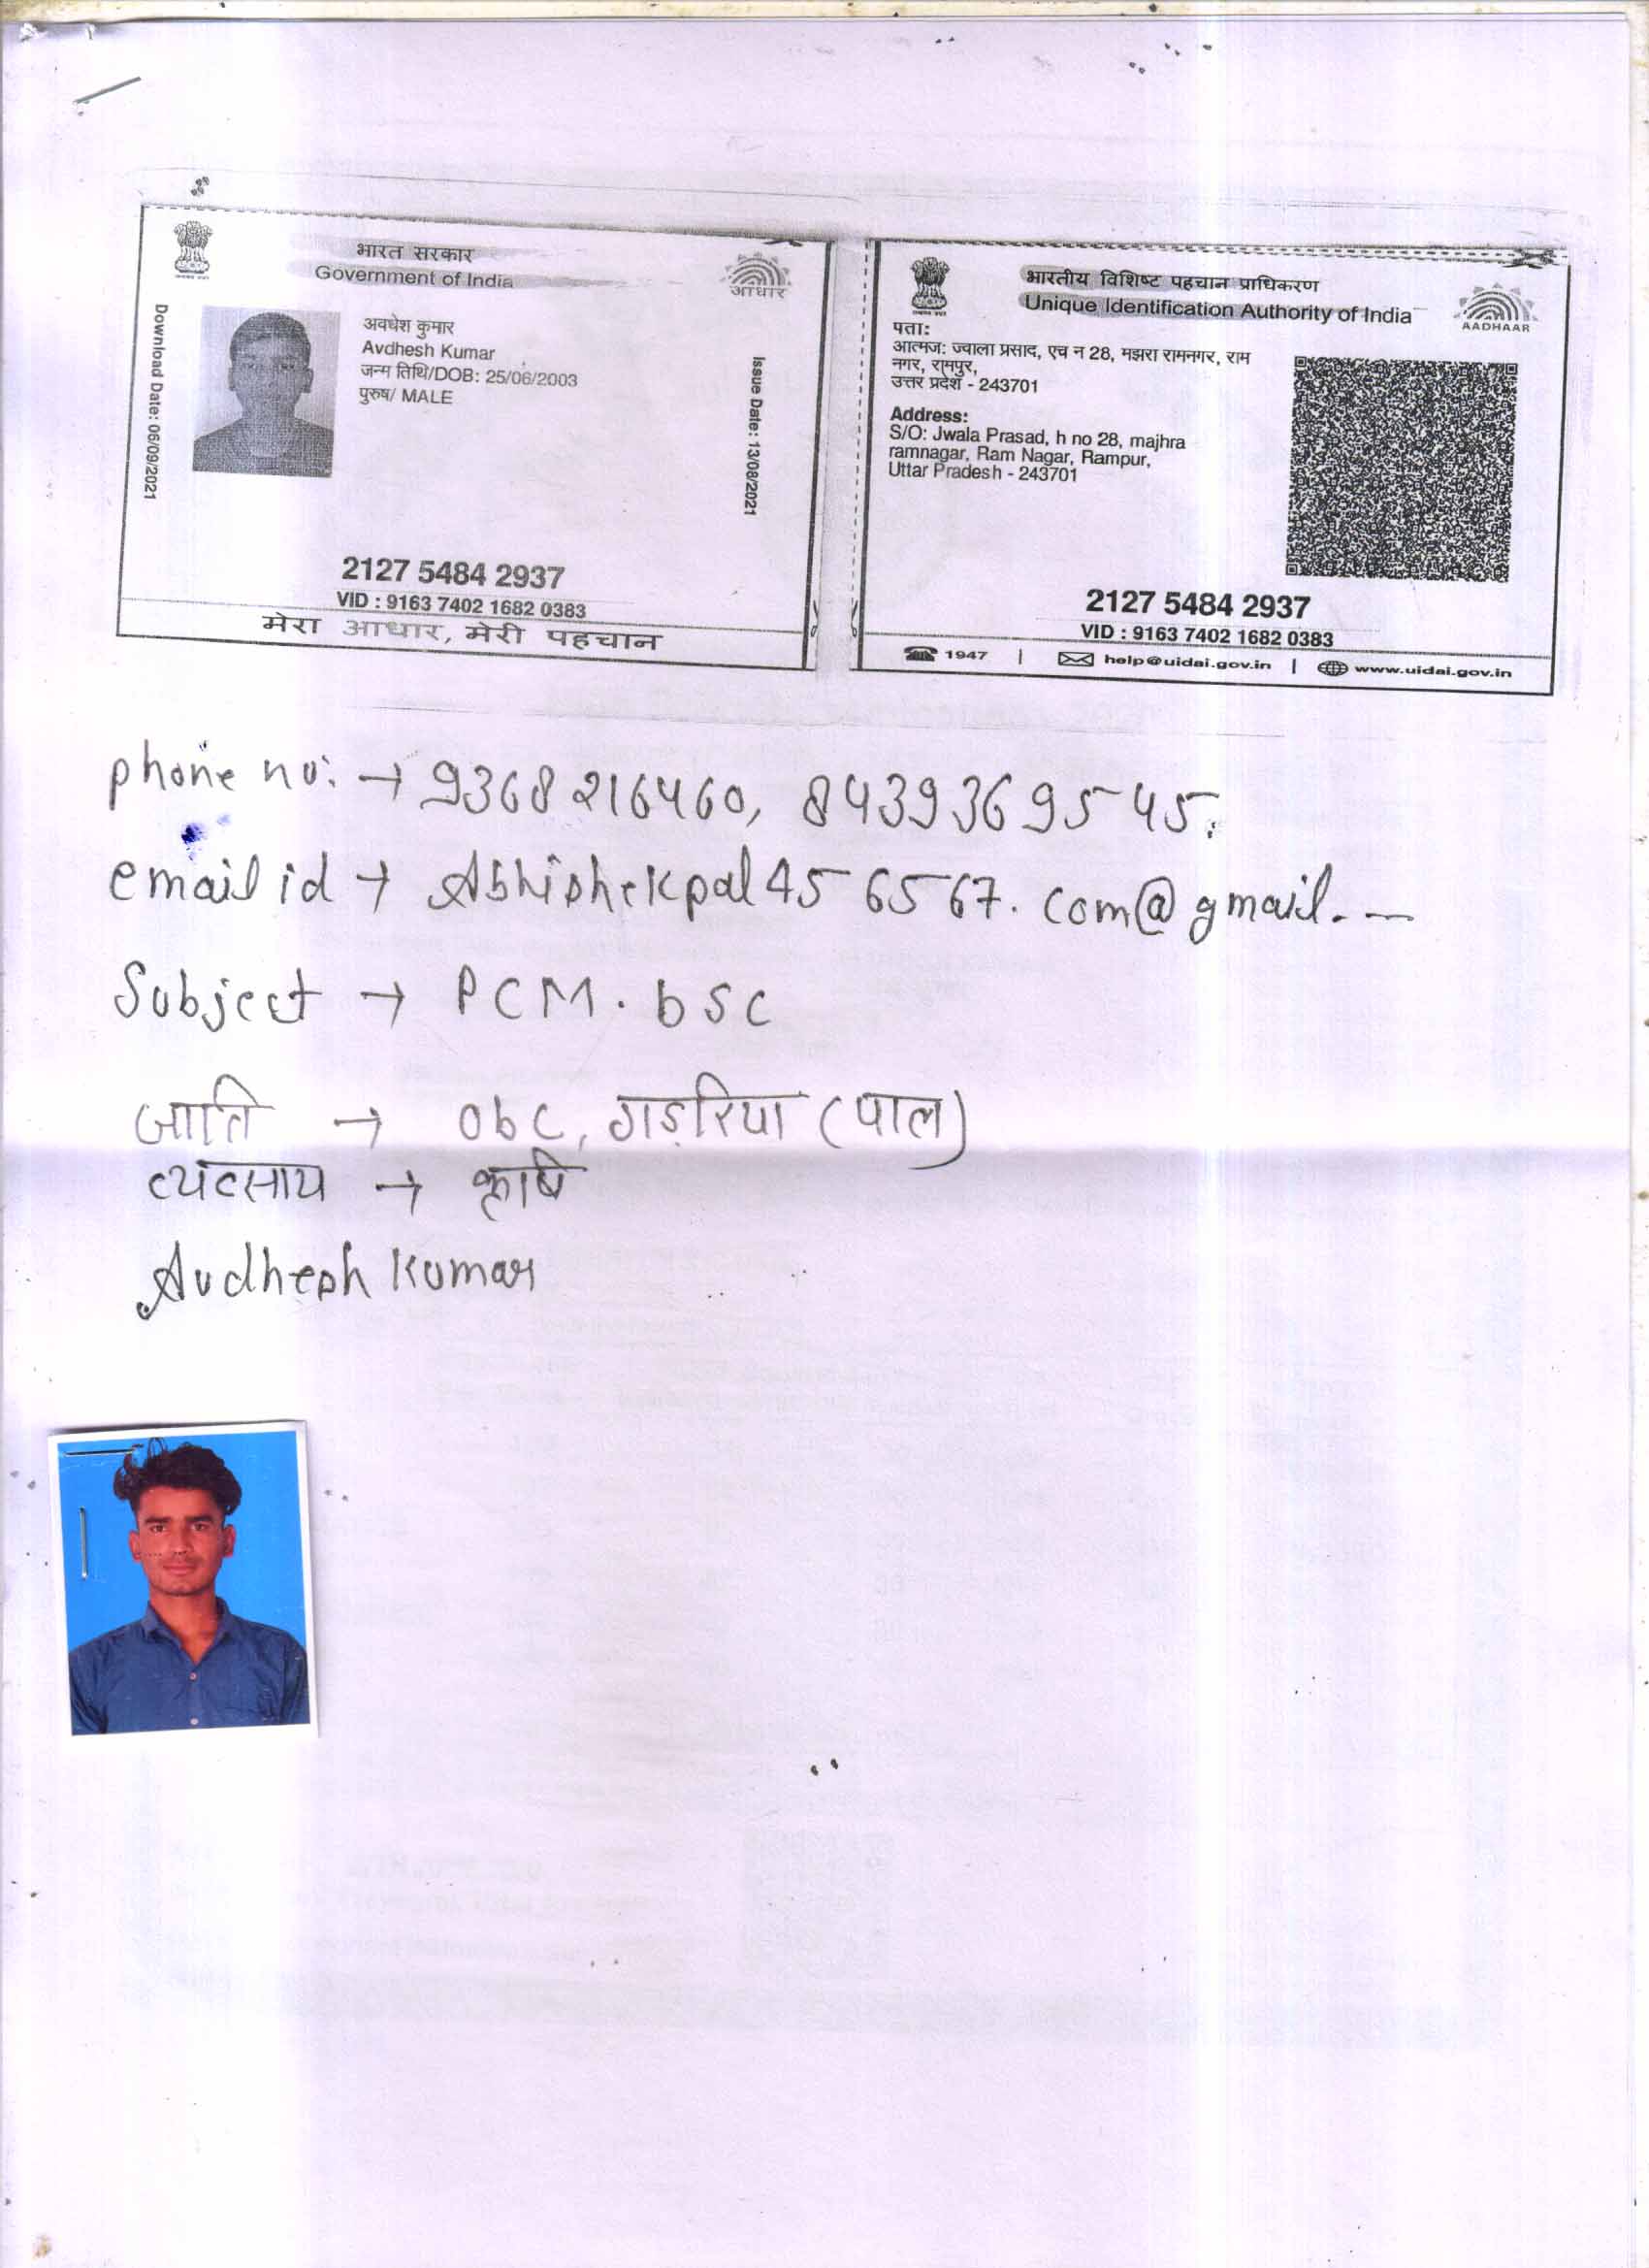 भारत सरकार
Government of India
आधार
Download Date: 06/09/2021
अवधेश कुमार
Avdhesh Kumar
जन्म तिथि/DOB: 25/06/2003
पुरुष/ MALE
Issue Date: 13/08/2021
2127 5484 2937
VID : 9163 7402 1682 0383
मेरा आधार, मेरी पहचान
भारतीय विशिष्ट पहचान प्राधिकरण
Unique Identification Authority of India
AADHAAR
पता:
आत्मज: ज्वाला प्रसाद, एच न 28, मझरा रामनगर, राम
नगर, रामपुर,
उत्तर प्रदेश - 243701
Address:
S/O: Jwala Prasad, h no 28, majhra
ramnagar, Ram Nagar, Rampur,
Uttar Pradesh - 243701
2127 5484 2937
VID : 9163 7402 1682 0383
1947 | help@uidai.gov.in | www.uidai.gov.in
phone no: → 9368216460, 8439369545.
email id → Abhishekpal456567.com@gmail.--
Subject → PCM. bSC
जाति → obC, गड़रिया (पाल)
व्यवसाय → कृषि
Avdhesh Kumar